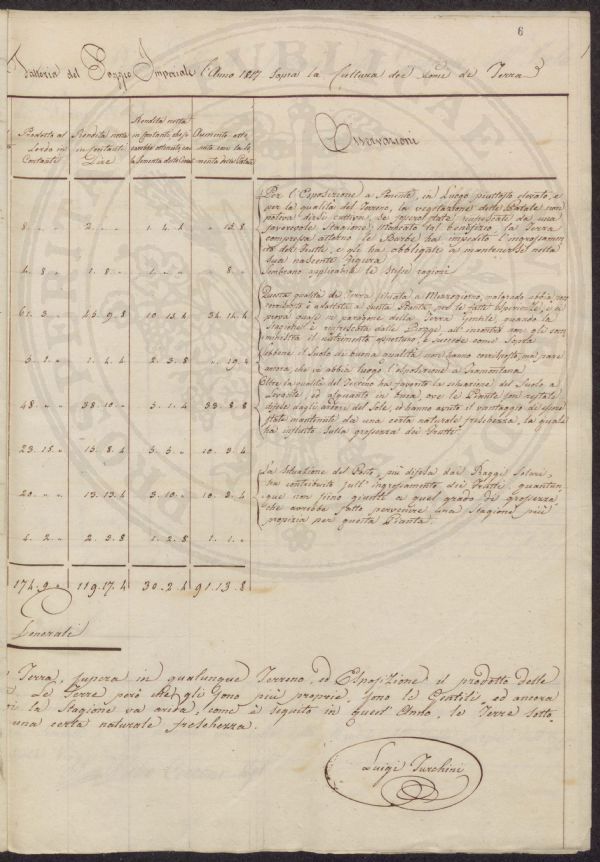 6
Fattoria del Poggio Imperiale l'Anno 1817 sopra la Cultura dei Pomi de Terra
Prodotto al Lordo in Contanti
Rendita netta in contanti Lire
Rendita netta in contanti, che si sarebbe ottenuta con la Sementa delle
Aumento ottenuto con la Sementa delle Patate
Osservazioni
8. „ „ 2. „ „ 1. 4. 4 „ 15. 8
4. 8. „ 1. 8. „ „ 8. „
61. 3. „ 45. 9. 8 10. 15. 4 34. 14. 4
5. 1. „ 1. 4. 4 2. 3. 8 „ 19. 4
48. „ „ 38. 10. „ 5. 1. 4 33. 8. 8
23. 15. „ 15. 8. 4 5. 5. „ 10. 3. 4
20. „ „ 13. 13. 4 3. 10. „ 10. 3. 4
4. 2. „ 2. 3. 8 1. 2. 8 1. 1. „
174. 9. „ 119. 17. 4 30. 2. 4 91. 13. 8
Per l'Esposizione a Ponente, in Luogo piuttosto elevato, e
per la qualità del Terreno, la vegetazione delle Patate non
poteva dirsi cattiva, se fosse stata rinfrescata da una
favorevole Stagione; Mancato tal benefizio, la Terra
compressa attorno le Barbe ha impedito l'ingrossamen-
to dei Frutti, e gli ha obbligati a mantenersi nella
sua nascente figura
Sembrano applicabili le stesse ragioni
Questa qualità di Terra situata a Mezzogiorno, malgrado abbia non
è adattata a questa Pianta, per le fatte esperienze, e a
prova quasi in paragone della Terra Gentile, quando la
Stagione è rinfrescata dalle Piogge, all'incontro non gli som-
ministra il nutrimento opportuno, e succede come sopra
Sebbene il Suolo di buona qualità non hanno corrisposto, ma pare
ancora, che vi abbia luogo l'esposizione a Tramontana
Oltre la qualità del Terreno ha favorito la situazione del Suolo a
Levante, ed alquanto in ove le Piante son restate
difese dagli ardori del Sole, ed hanno avuto il vantaggio di essere
state mantenute da una certa naturale freschezza, la quale
ha influito sulla grossezza dei Frutti
La Situazione del Posto, più difesa dai Raggi Solari,
ha contribuito sull'ingrossamento dei Frutti, quantun-
que non sieno giunti a quel grado di grossezza,
che avrebbe fatto pervenire una Stagione più
propizia per questa Pianta.
Generali
Terra, supera in qualunque Terreno, ed Esposizione il prodotto delle
Le Terre però che gli sono più proprie, sono le Gentili, ed ancora
la Stagione va arida, come è seguito in quest'Anno, le Terre sotto
una certa naturale freschezza.
Luigi Turchini